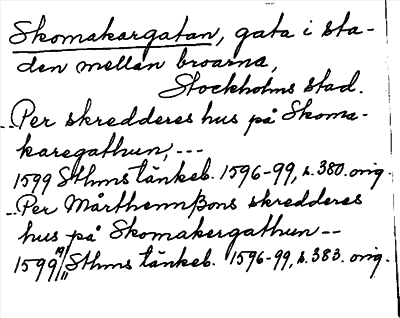 Skomakargatan, gata i sta-
den mellan broarna,
Stockholms stad.
--Per skredderes hus på Skoma-
karegathun, ---
1599 Sthms tänkeb. 1596-99, s. 380. orig.
--Per Mårthennßons skredderes
hus på Skomakergathun --
1599 Sthms tänkeb. 1596-99, s. 383. orig.